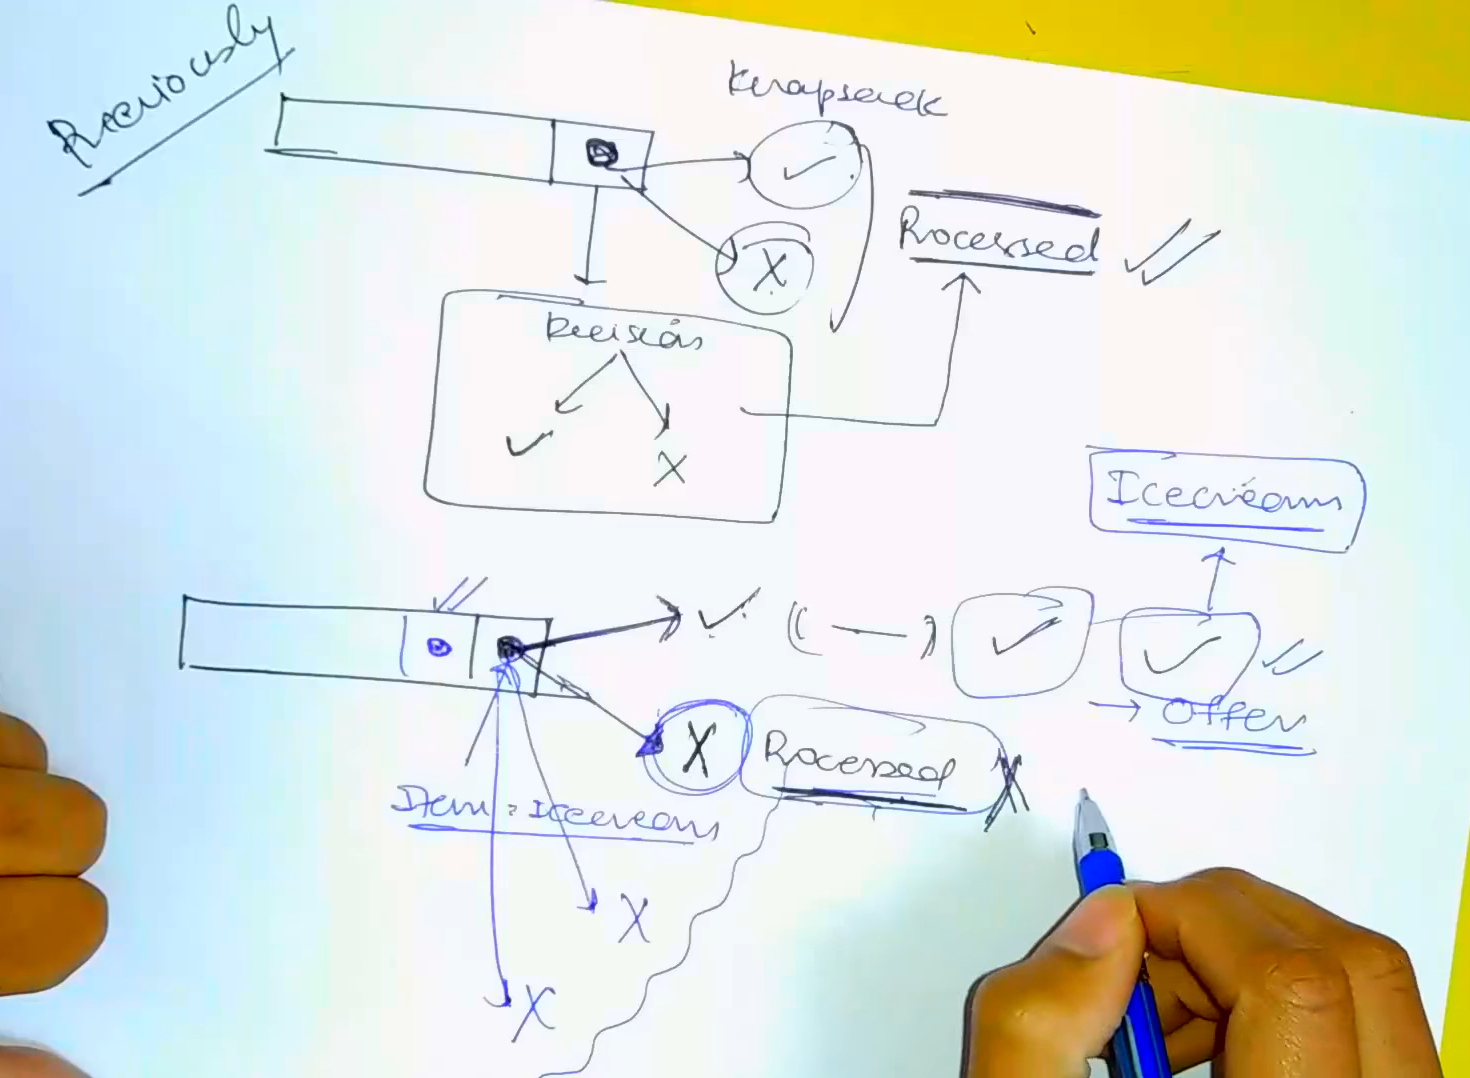 Previously
Knapsack
✓
X
Processed ✓✓
Decision
✓ X
Icecream
✓ ( — ) ✓ ✓ ✓✓
→ Offer
X Processed X
Item : Icecream
X
X